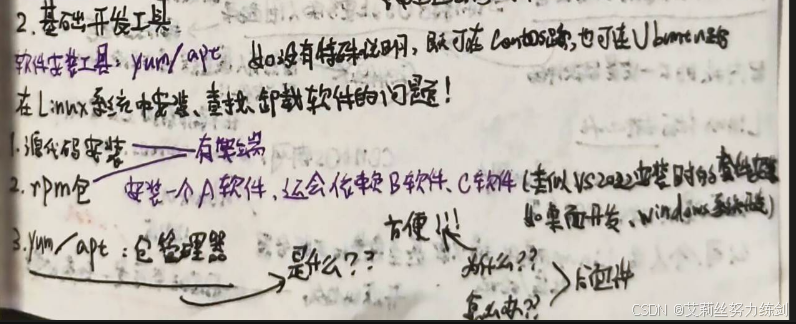 2. 基础开发工具
软件安装工具：yum/apt 如没有特殊说明，既可在CentOS，也可在Ubuntu
在Linux系统中安装、查找、卸载软件的问题！
1. 源代码安装——有弊端
2. rpm包 安装一个A软件，还会依赖B软件、C软件（类似VS2022安装时的
如桌面开发、windows
方便!!!
3. yum/apt：包管理器 是什么?? 为什么??
怎么办??
CSDN @艾莉丝努力练剑